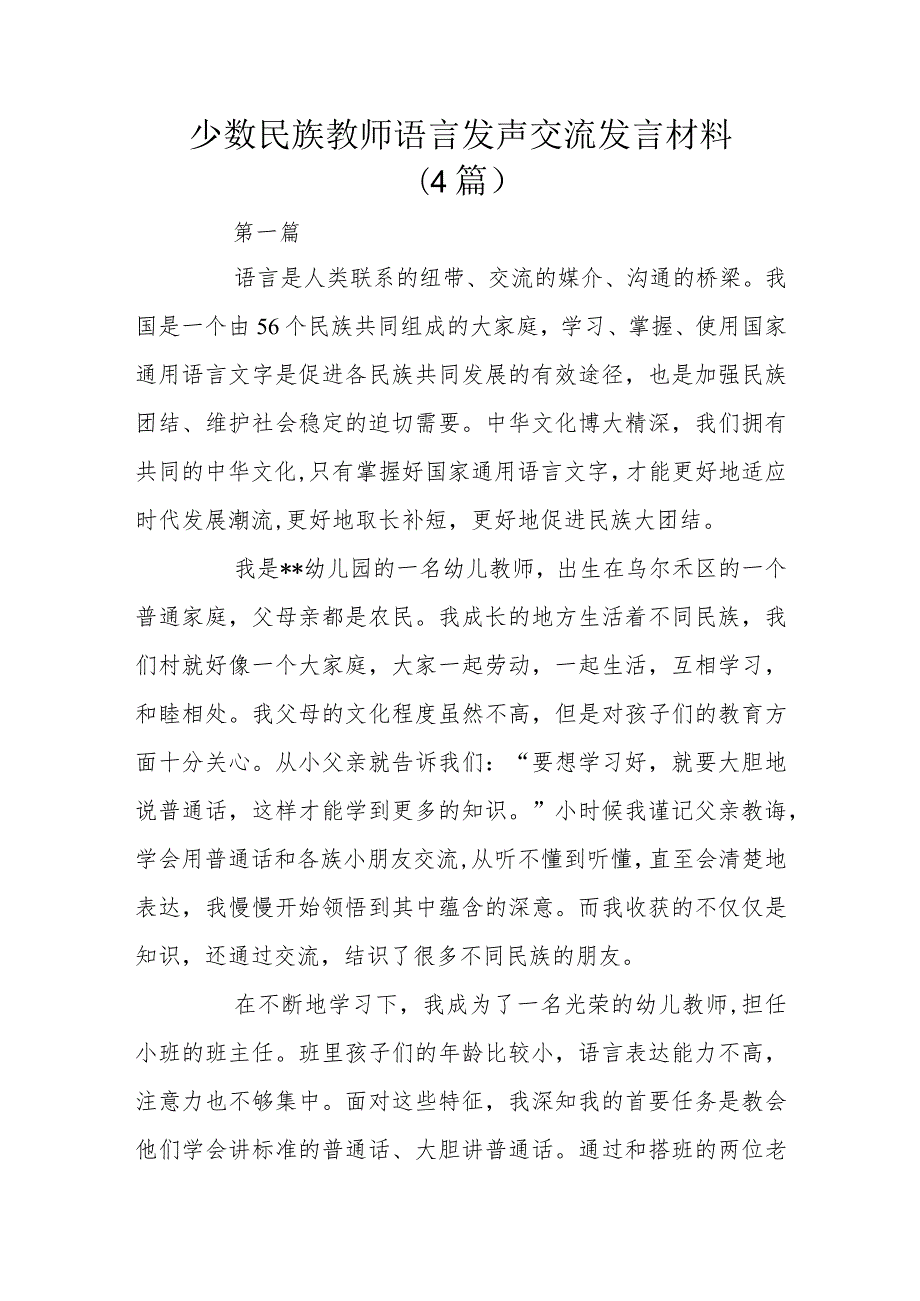 少数民族教师语言发声交流发言材料
(4篇）
第一篇
语言是人类联系的纽带、交流的媒介、沟通的桥梁。我
国是一个由56个民族共同组成的大家庭，学习、掌握、使用国家
通用语言文字是促进各民族共同发展的有效途径，也是加强民族
团结、维护社会稳定的迫切需要。中华文化博大精深，我们拥有
共同的中华文化,只有掌握好国家通用语言文字，才能更好地适应
时代发展潮流,更好地取长补短，更好地促进民族大团结。
我是**幼儿园的一名幼儿教师，出生在乌尔禾区的一个
普通家庭，父母亲都是农民。我成长的地方生活着不同民族，我
们村就好像一个大家庭，大家一起劳动，一起生活，互相学习，
和睦相处。我父母的文化程度虽然不高，但是对孩子们的教育方
面十分关心。从小父亲就告诉我们：“要想学习好，就要大胆地
说普通话，这样才能学到更多的知识。”小时候我谨记父亲教诲，
学会用普通话和各族小朋友交流,从听不懂到听懂，直至会清楚地
表达，我慢慢开始领悟到其中蕴含的深意。而我收获的不仅仅是
知识，还通过交流，结识了很多不同民族的朋友。
在不断地学习下，我成为了一名光荣的幼儿教师,担任
小班的班主任。班里孩子们的年龄比较小，语言表达能力不高，
注意力也不够集中。面对这些特征，我深知我的首要任务是教会
他们学会讲标准的普通话、大胆讲普通话。通过和搭班的两位老